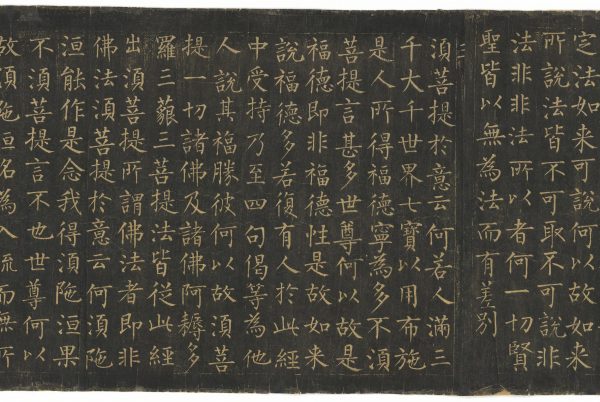 定法如来可說何以故如来
所說法皆不可取不可說非
法非非法所以者何一切賢
聖皆以無為法而有差別
三
湏菩提於意云何若人滿三
千大千世界七寶以用布施
是人所得福德寧為多不湏
菩提言甚多世尊何以故是
福德即非福德性是故如来
說福德多若復有人於此經
中受持乃至四句偈等為他
人說其福勝彼何以故湏菩
提一切諸佛及諸佛阿耨多
羅三藐三菩提法皆從此經
出湏菩提所謂佛法者即非
佛法湏菩提於意云何湏陁
洹能作是念我得湏陁洹果
不湏菩提言不也世尊何以
故湏陁洹名為入流而無所